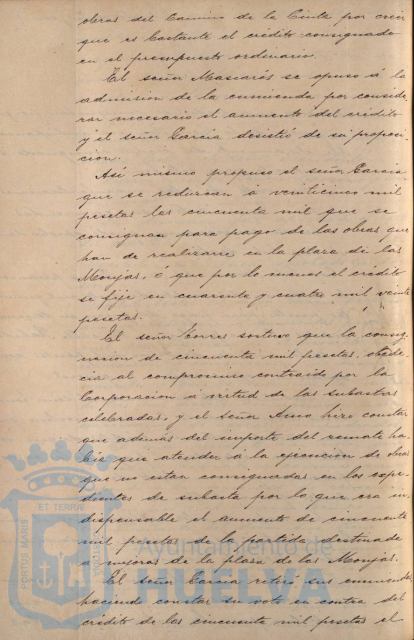 obras del Camino de la Cinta por creer
que es bastante el crédito consignado
en el presupuesto ordinario.
El señor Mascarós se opuso á la
admision de la enmienda por conside
rar necesario el aumento del crédito
y el señor García desistió de su proposi
cion.
Así mismo propuso el señor García
que se reduzcan á veinticinco mil
pesetas las cincuenta mil que se
consignan para pago de las obras que
han de realizarse en la plaza de las
Monjas, ó que por lo menos el crédito
se fije en cuarenta y cuatro mil veinte
pesetas.
El señor Torres sostuvo que la consig
nacion de cincuenta mil pesetas, obede
cia al compromiso contraido por la
Corporacion á virtud de las subastas
celebradas, y el señor hizo constar
que ademas del importe del remate ha
bia que atender á la ejecucion de obras
que no estan consignadas en los espe
dientes de subasta por lo que era in
dispensable el aumento de cincuenta
mil pesetas de la partida destinada
a mejoras de la plaza de las Monjas.
El señor García retiró sus enmiendas
haciendo constar su voto en contra del
crédito de las cincuenta mil pesetas el
PORTUS MARIS ET TERRAE CUSTODIA
Ayuntamiento de
HUELVA